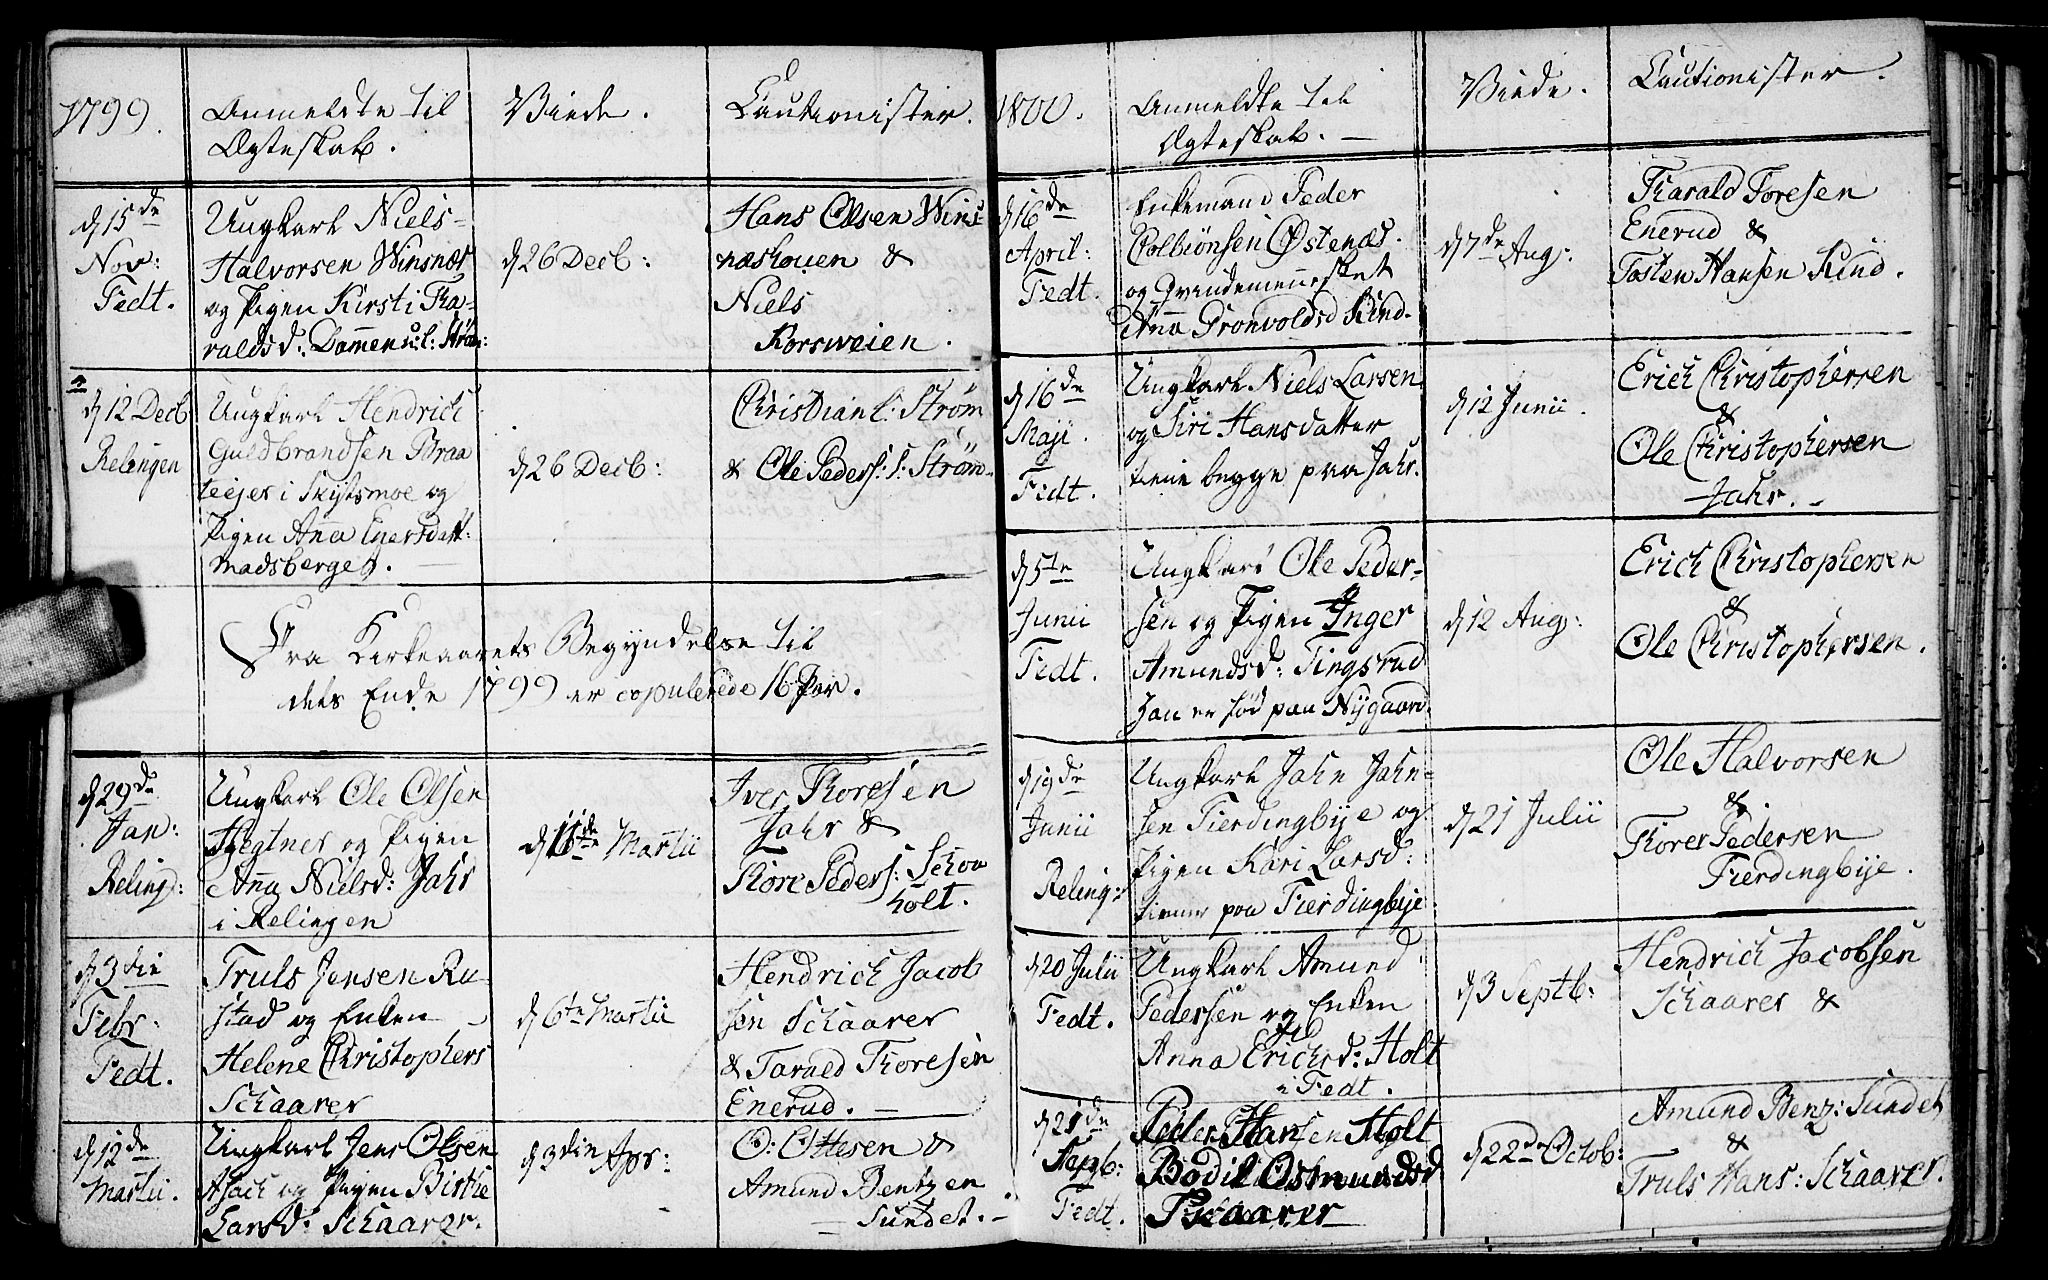 1799.
Anmeldte til
Ægteskab.
Viede.
Cautionister.
d 15de
Nov:
Fedt.
Ungkarl Niels
Halvorsen Winsnæs
og Pigen Kirsti Tha-
raldsd: Dammen u: l: Strøm:
d 26 Decb:
Hans Olsen Wins
næskouen &
Niels
Korsweien.
d 12 Decb
Relingen
Ungkarl Hendrich
Guldbrandsen Braa
teejer i Skijtsmoe og
Pigen Anna Enersdatt:
Madsberget.
d 26 Decb:
Christian l: Strøm
& Ole Peders: l: Strøm.
Fra Kirkeaarets Begyndelse til
dets Ende 1799 er copulerede 16 Par.
d 29de
Jan:
Reling:
Ungkarl Ole Olsen
Hegtner og Pigen
Anna Nielsd: Jahr
i Relingen
d 11te Martii
Iver Thoresen
Jahr &
Thore Peders: Schou
holt.
d 3die
Febr:
Fedt.
Truls Jensen Ru-
stad og Enken
Helene Christophers
Schaarer
d 6te Martii
Hendrich Jacob
sen Schaarer
& Tarald Thoresen
Enerud.
d 12de
Martii.
Ungkarl Jens Olsen
Asach og Pigen Birthe
Larsd: Schaarer.
d 3die Apr:
O: Ottesen &
Amund Bentzen
Sundet.
1800.
Anmeldte til
Ægteskab.
Viede.
Cautionister.
d 16de
April:
Fedt.
Enkemand Peder
Colbiønsen Østenæs.
og Qvindemennesket
Anna Gronvoldsd Kind.
d 7de Aug:
Tharald Toresen
Enerud &
Tosten Hansen Kind.
d 16de
Maji.
Fedt.
Ungkarl Niels Larsen
og Siri Hansdatter
tiene begge paa Jahr.
d 12 Junii.
Erich Christophersen
&
Ole Christophersen
Jahr.
d 5te
Junii
Fedt.
Ungkarl Ole Peder-
sen og Pigen Inger
Amundsd: Tingsrud
han er fød paa Nygaard.
d 12 Aug:
Erich Christophersen
&
Ole Christophersen.
d 19de
Junii
Reling:
Ungkarl Jahn Jahn-
sen Fierdingbye og
Pigen Kari Larsd:
tiener paa Fierdingbye
d 21 Julii
Ole Halvorsen
&
Thorer Pedersen
Fierdingbye.
d 20 Julii
Fedt.
Ungkarl Amund
Pedersen og Enken
Anna Erichsd: Holt
i Fedt.
d 3 Septb:
Hendrich Jacobsen
Schaarer &
d 21de
Septb:
Fedt.
Peder Hansen Holt
og
Bodil Osmundsd
Schaarer
d 22de Octob:
Amund Benz: Sundet
&
Truls Hans: Schaarer.